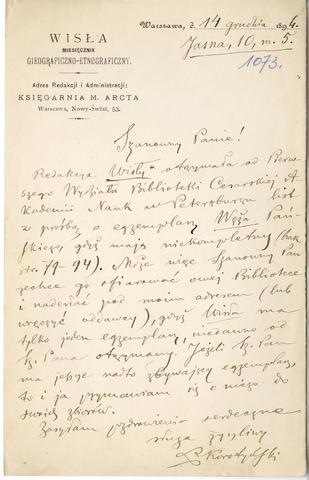 WISŁA
MIESIĘCZNIK
GIEOGRAFICZNO-ETNOGRAFICZNY.
Adres Redakcji i Administracji:
KSIĘGARNIA M. ARCTA
Warszawa, Nowy-Świat, 53.
Warszawa, d. 14 grudnia 1894.
Jasna, 10, m. 5.
1073.
Szanowny Panie!
Redakcja „Wisły” otrzymała od Pierw-
szego Wydziału Biblioteki Cesarskiej A
kademii Nauk w Petersburgu list
z prośbą o egzemplarz Węża Pań-
skiego, gdyż mają niekompletny (brak
str. 79-94). Może więc Szanowny Pan
zechce go ofiarować owej Bibliotece
i nadesłać pod moim adresem (lub
wręczyć oddawcy), gdyż Wisła ma
tylko jeden egzemplarz, niedawno od
Sz. Pana otrzymany. Jeżeli Sz. Pan
ma jeszcze nadto zbywający egzemplarz,
to i ja przymawiam się o niego do
swoich zbiorów.
Zasyłam pozdrowienia serdeczne
sługa życzliwy
Korotyński